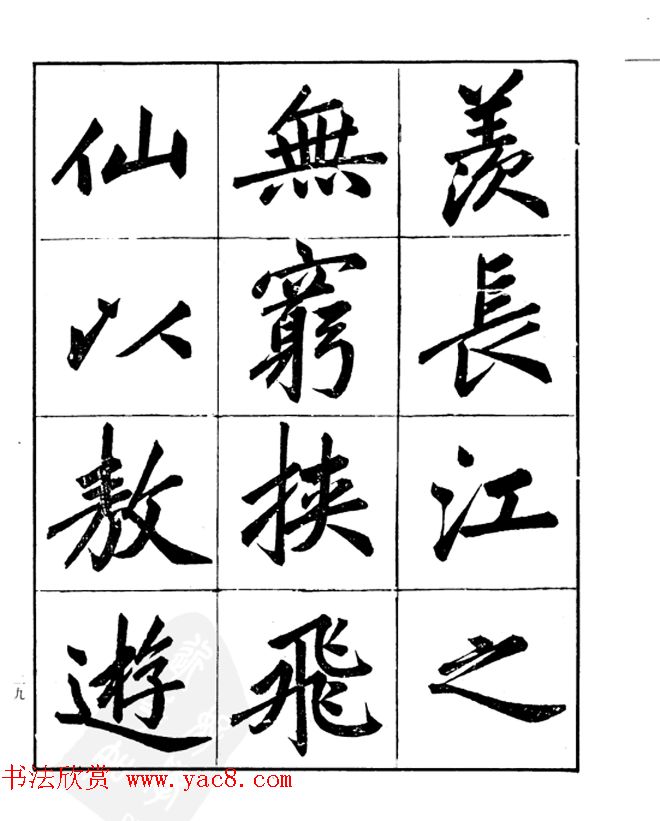 羨長江之
無窮挾飛
仙以敖遊
一九
书法欣赏 www.yac8.com